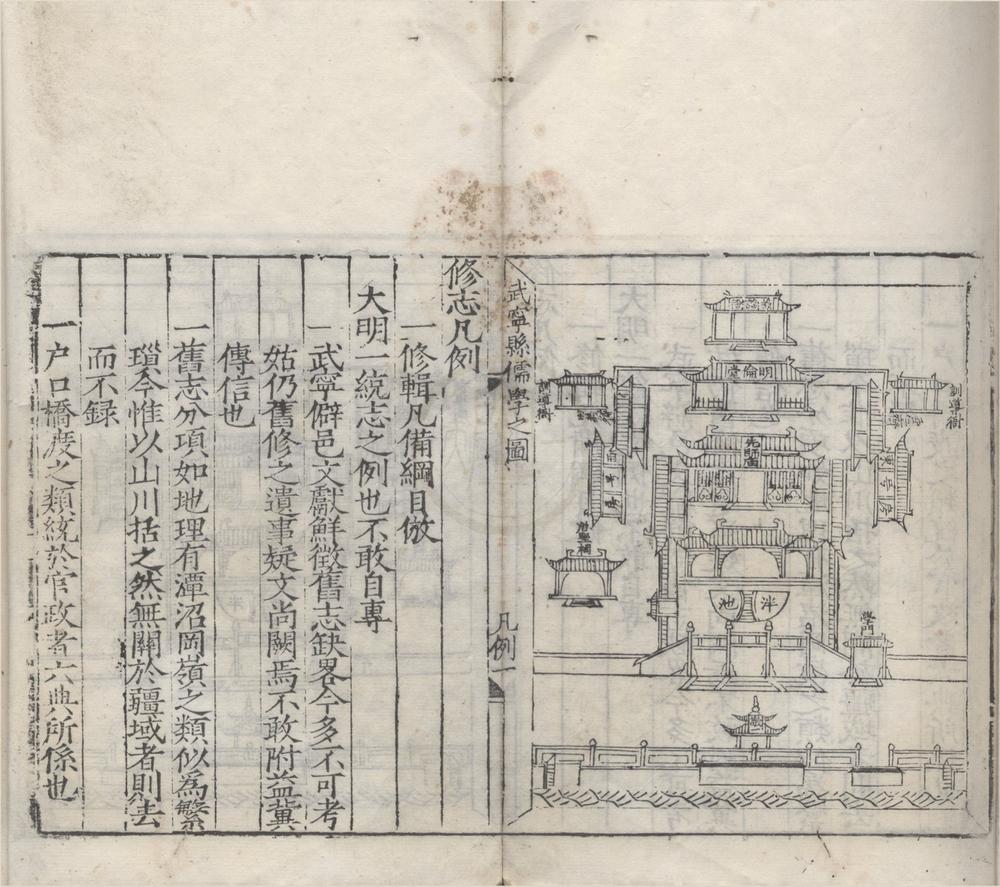 武寧縣儒學之圖
明倫堂
訓導衙
訓導衙
先師廟
東號房
西號房
泮池
學門
修志凡例
一修輯凡備綱目倣
大明一統志之例也不敢自專
一武寧僻邑文獻鮮徵舊志缺畧今多不可考
姑仍舊修之遺事疑文尚闕焉不敢附益冀
傳信也
一舊志分項如地理有潭沼岡嶺之類似為繁
瑣今惟以山川括之然無關於疆域者則去
而不録
一户口橋渡之類統於官政者六典所係也
凡例一